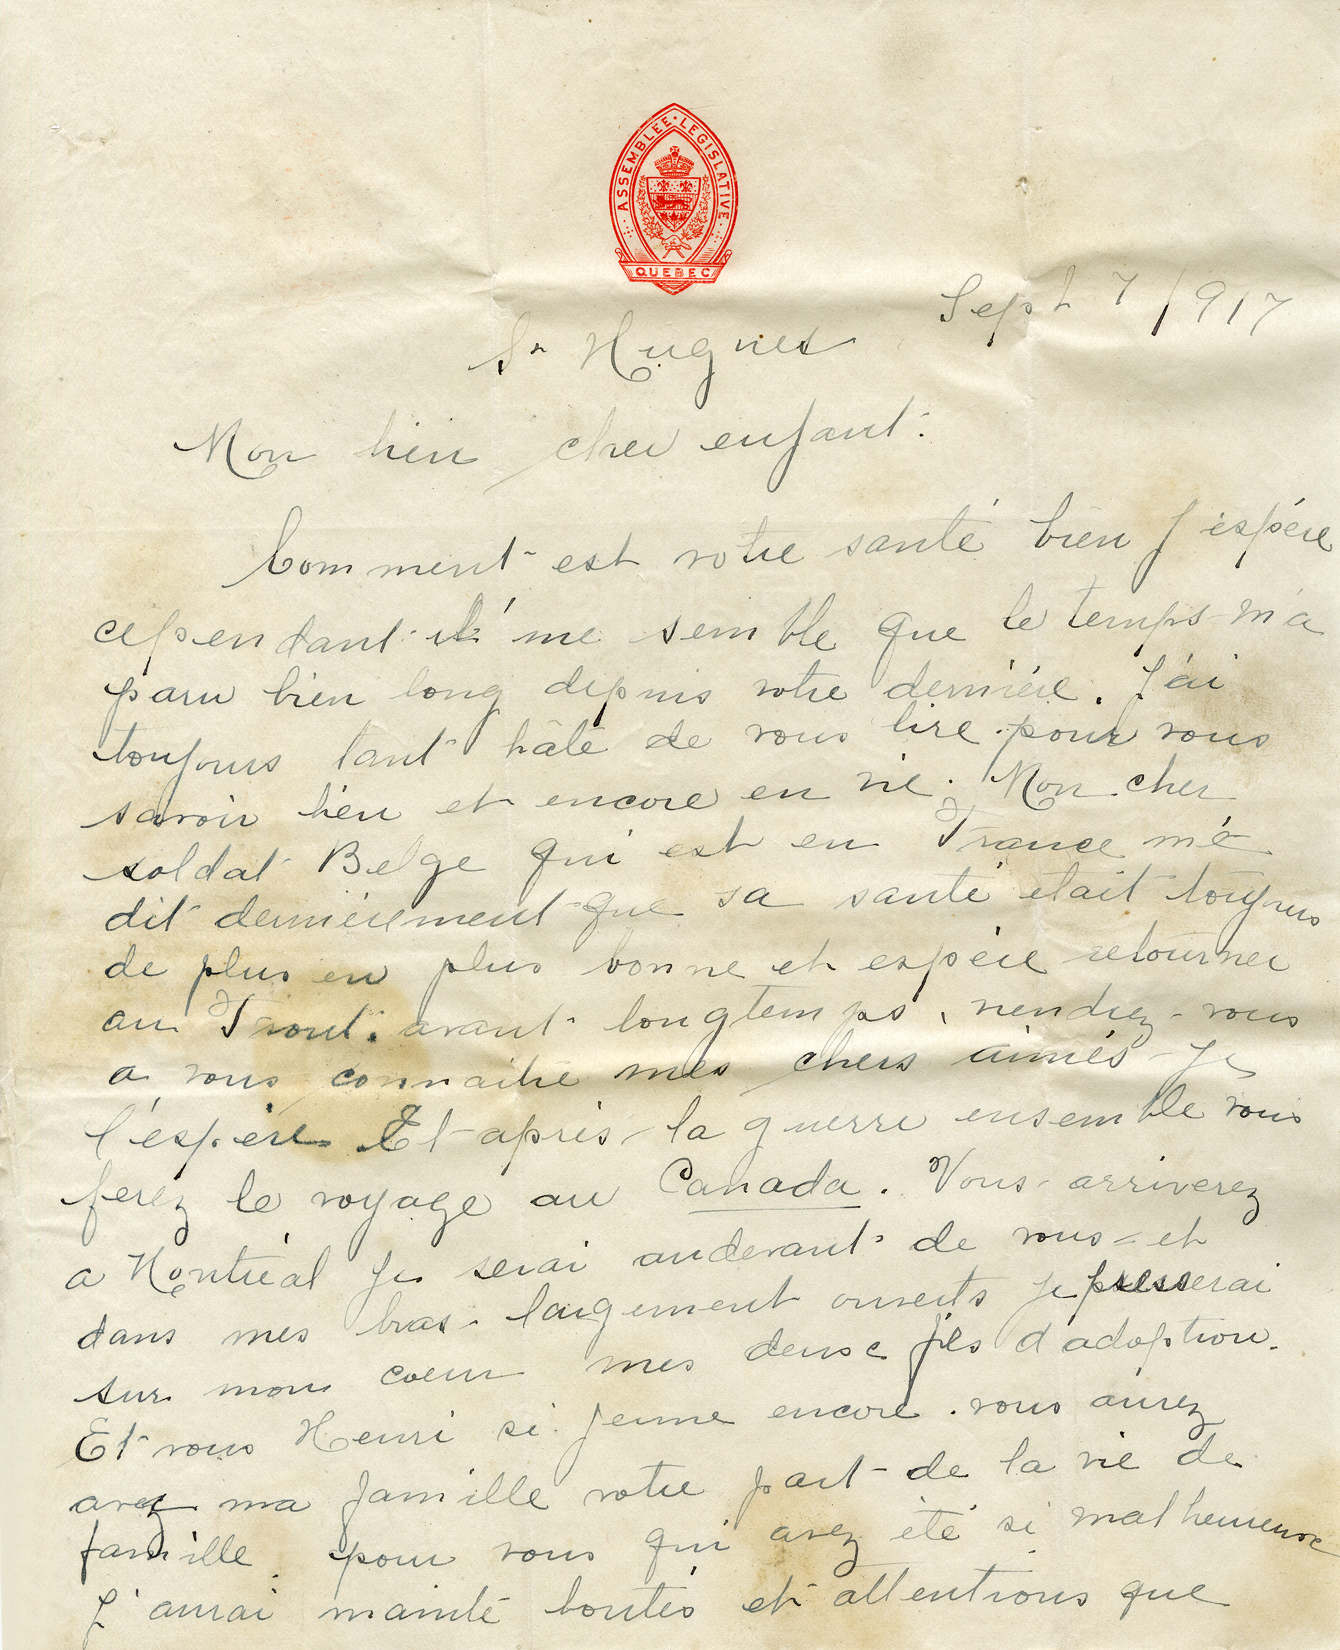 ASSEMBLÉE · LEGISLATIVE
QUEBEC
Sept 7 / 917
St Hugues
Mon bien cher enfant.
Comment est votre santé bien j'espère
cependant il me semble que le temps m'a
paru bien long depuis votre dernière. J'ai
toujours tant hâte de vous lire pour vous
savoir bien et encore en vie. Mon cher
soldat Belge qui est en France m'a
dit dernièrement que sa santé était toujours
de plus en plus bonne et espère retourner
au Front. avant longtemps, viendrez-vous
a vous connaitre mes chers aimés je
l'espère Et après la guerre ensemble vous
ferez le voyage au Canada. Vous arriverez
a Montréal je serai audevant de vous et
dans mes bras largement ouverts je presserai
sur mon coeur mes deux fils d'adoption.
Et vous Henri si jeune encore. vous aurez
avez ma famille votre part de la vie de
famille pour vous qui avez été si malheureux
J'aurai mainte bontés et attentions que